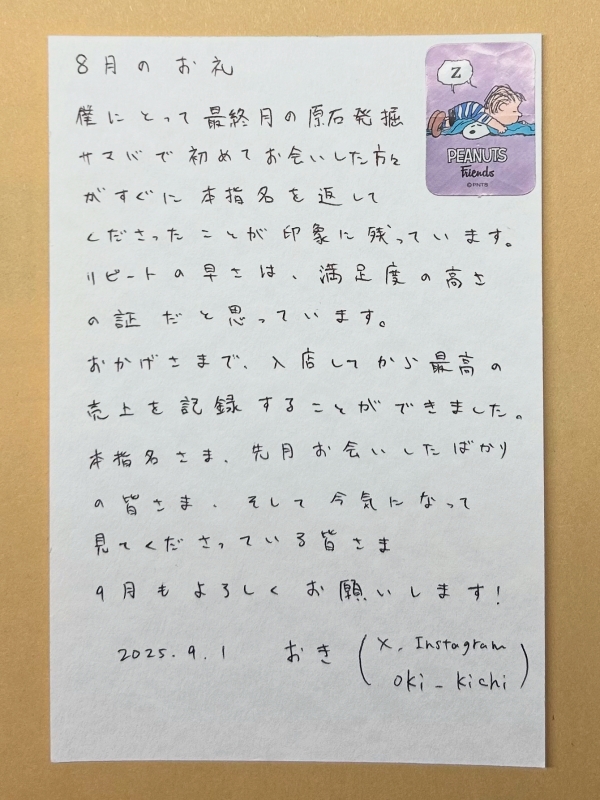 8月のお礼
Z
PEANUTS
Friends
©PNTS
僕にとって最終月の原石発掘
サマバで初めてお会いした方々
がすぐに本指名を返して
くださったことが印象に残っています。
リピートの早さは、満足度の高さ
の証だと思っています。
おかげさまで、入店してから最高の
売上を記録することができました。
本指名さま、先月お会いしたばかり
の皆さま、そして今気になって
見てくださっている皆さま
9月もよろしくお願いします!
2025.9.1 おき (X, Instagram
oki_kichi)